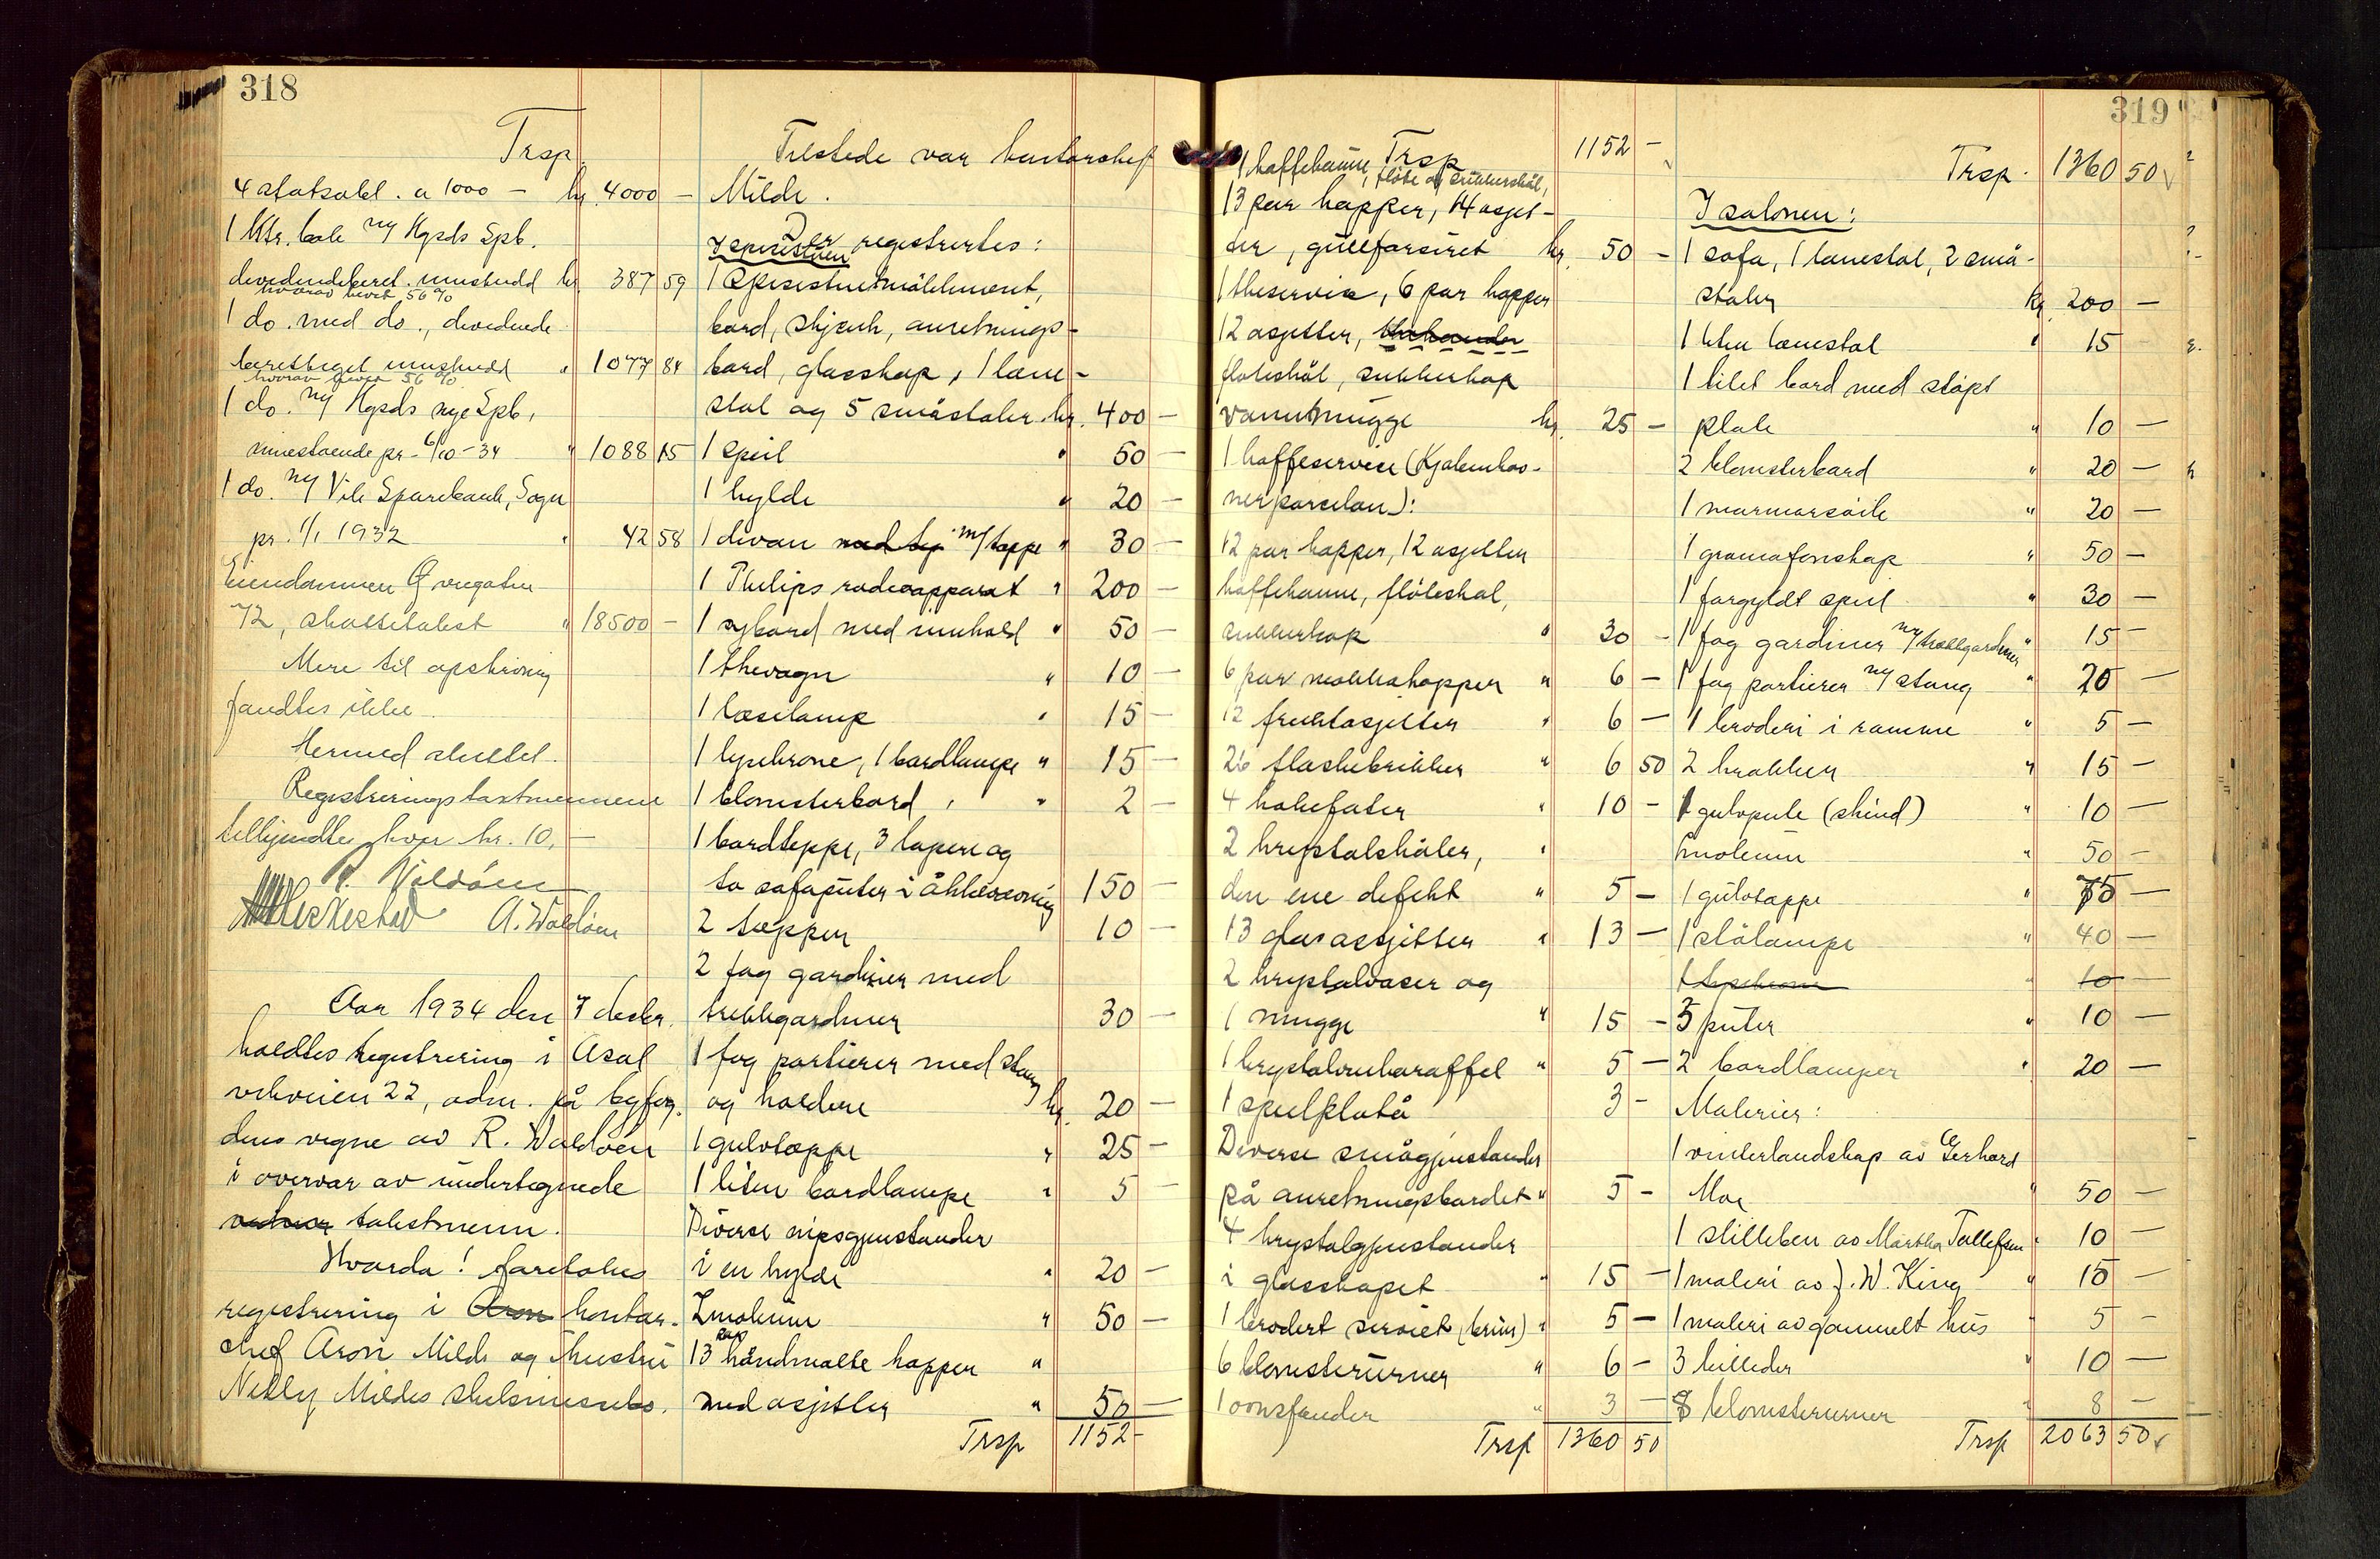 318
Trsp.
4 statsobl. a 1000 - kr. 4000 -
1 ktr. bok m/ Hgsds Spb.
dividendeberet. innskudd kr. 387 59
hvorav hevet 56 %
1 do. med do., dividende
berettiget innskudd " 1077 84
hvorav hevet 56 %
1 do. m/ Hgsds nye Spb.,
innestaaende pr. 6/10-34 " 1088 15
1 do. m/ Vik Sparebank, Sogn
pr. 1/1 1932 " 42 58
Eiendommen
72, skattetakst " 18500 -
Mere til opskrivning
fandtes ikke.
Hermed sluttet.
Registreringstakstmennene
tilkjendte hver kr. 10,-
A. Waldöen
Aar 1934 den 7 desbr.
holdtes registrering i Asal
vikveien 22, adm. på byfog.
dens vegne av R. Waldöen
i overvær av undertegnede
takstmenn.
Hvorda! foretokes
registrering i Aron kontor-
chef Aron Milde og hustru
Nelly Mildes skilsmissebo.
Tilstede var kontorchef
Milde.
Der registrertes:
I spisestuen
1 spisestuemöblement,
bord, skjenk, anretnings-
bord, glasskap, 1 læne-
stol og 5 småstoler kr. 400 -
1 speil " 50 -
1 hylde " 20 -
1 divan med tep m/ teppe " 30 -
1 Philips radioapparat " 200 -
1 sybord med innhold " 50 -
1 thevogn " 10 -
1 læselampe " 15 -
1 lysekrone, 1 bordlampe " 15 -
1 blomsterbord " 2 -
1 bordteppe, 3 löpere og
to sofaputer i åklevevning 150 -
2 tæpper 10 -
2 fag gardiner med
trekkgardiner 30 -
1 fag portierer med stang
og holdere kr. 20 -
1 gulvteppe " 25 -
1 liten bordlampe " 5 -
Diverse nipsgjenstander
i en hylde " 20 -
Linoleum " 50 -
13 par håndmalte kopper "
med asjetter " 50 -
Trsp 1152 -
319
Trsp 1152 -
1 kaffekanne, flöte og sukkerskål,
13 par kopper, 14 asjet-
ter, gullforsiret kr. 50 -
1 theservice, 6 par kopper
12 asjetter, thekander
flöteskål, sukkerkop
vannmugge kr. 25 -
1 kaffeservice (Kjöbenhav-
nerporcelan):
12 par kopper, 12 asjetter
kaffekanne, flöteskål,
sukkerkop " 30 -
6 par mokkakopper " 6 -
12 fruktasjetter " 6 -
26 flaskebrikker " 6 50
4 kakefater " 10 -
2 krystalskåler, "
den ene defekt " 5 -
13 glassasjetter " 13 -
2 krystalvaser og
1 mugge " 15 -
1 krystalvinkaraffel " 5 -
1 speilplatå 3 -
Diverse smågjenstander
på anretningsbordet " 5 -
4 krystalgjenstander
i glasskapet " 15 -
1 brodert serviet (krus) " 5 -
6 blomsterurner " 6 -
1 ovnsfender " 3 -
Trsp 1360 50
Trsp. 1360 50
I salonen:
1 sofa, 1 lænestol, 2 små-
stoler kr. 200 -
1 liten lænestol " 15
1 litet bord med stöpt
plate " 10 -
2 blomsterbord " 20 -
1 marmorsöile " 20 -
1 gramofonskap " 50 -
1 forgyldt speil " 30 -
1 fag gardiner m/ trekkgardiner " 15 -
1 fag portierer m/ stang " 20 -
1 broderi i ramme " 5 -
2 krakker " 15 -
1 gulvpute (skind) " 10 -
Linoleum " 50 -
1 gulvteppe " 75 -
1 stålampe " 40 -
1 lysekrone " 10 -
3 puter " 10 -
2 bordlamper " 20 -
Malerier:
1 vinterlandskap av Gerhard
Moe " 50 -
1 stilleben av Märtha Tollefsen " 10 -
1 maleri av J. W. King " 15 -
1 maleri av gammelt hus " 5 -
3 billeder " 10 -
8 blomsterurner " 8 -
Trsp 2063 50